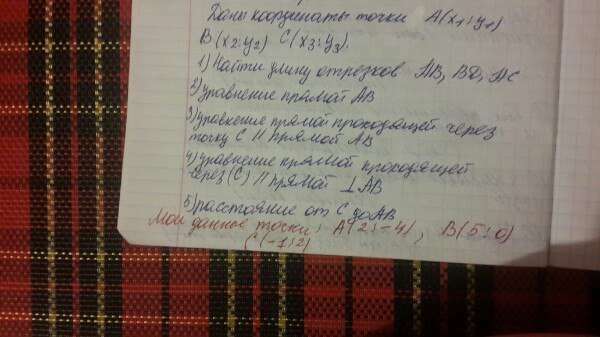 Даны координаты точки A(x1;y1)
B(x2;y2) C(x3;y3).
1) Найти длину отрезков AB, BC, AC
2) уравнение прямой AB
3) уравнение прямой проходящей через
точку C || прямой AB
4) уравнение прямой проходящей
через (C) || прямой ⊥ AB
5) расстояние от C до AB
Мои данные точки: A(2;-4), B(5;0)
C(-1;2)